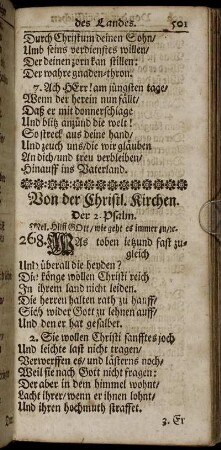 des Landes. 501
Durch Christum deinen Sohn/
Umb seins verdienstes willen/
Der deinen zorn kan stillen:
Der wahre gnaden-thron.
7. Ach HErr! am jüngsten tage/
Wenn der herein nun fällt/
Daß er mit donnerschlage
Und blitz anzünd die welt!
So streck aus deine hand/
Und zeuch uns/die wir gläuben
An dich/und treu verbleiben/
Hinauff ins Vaterland.
Von der Christl. Kirchen.
Der 2. Psalm.
Mel. Hilff GOtt/wie geht es immer zu/ꝛc.
268. WAs toben ietzund fast zu-
gleich
Und überall die heyden?
Die könge wollen Christi reich
In ihrem land nicht leiden.
Die herren halten rath zu hauff/
Sich wider Gott zu lehnen auff/
Und den er hat gesalbet.
2. Sie wollen Christi sanfftes joch
Und leichte last nicht tragen/
Verwerffen es/ und lästerns noch/
Weil sie nach Gott nicht fragen:
Der aber in dem himmel wohnt/
Lacht ihrer/wenn er ihnen lohnt/
Und ihren hochmuth straffet.
3. Er